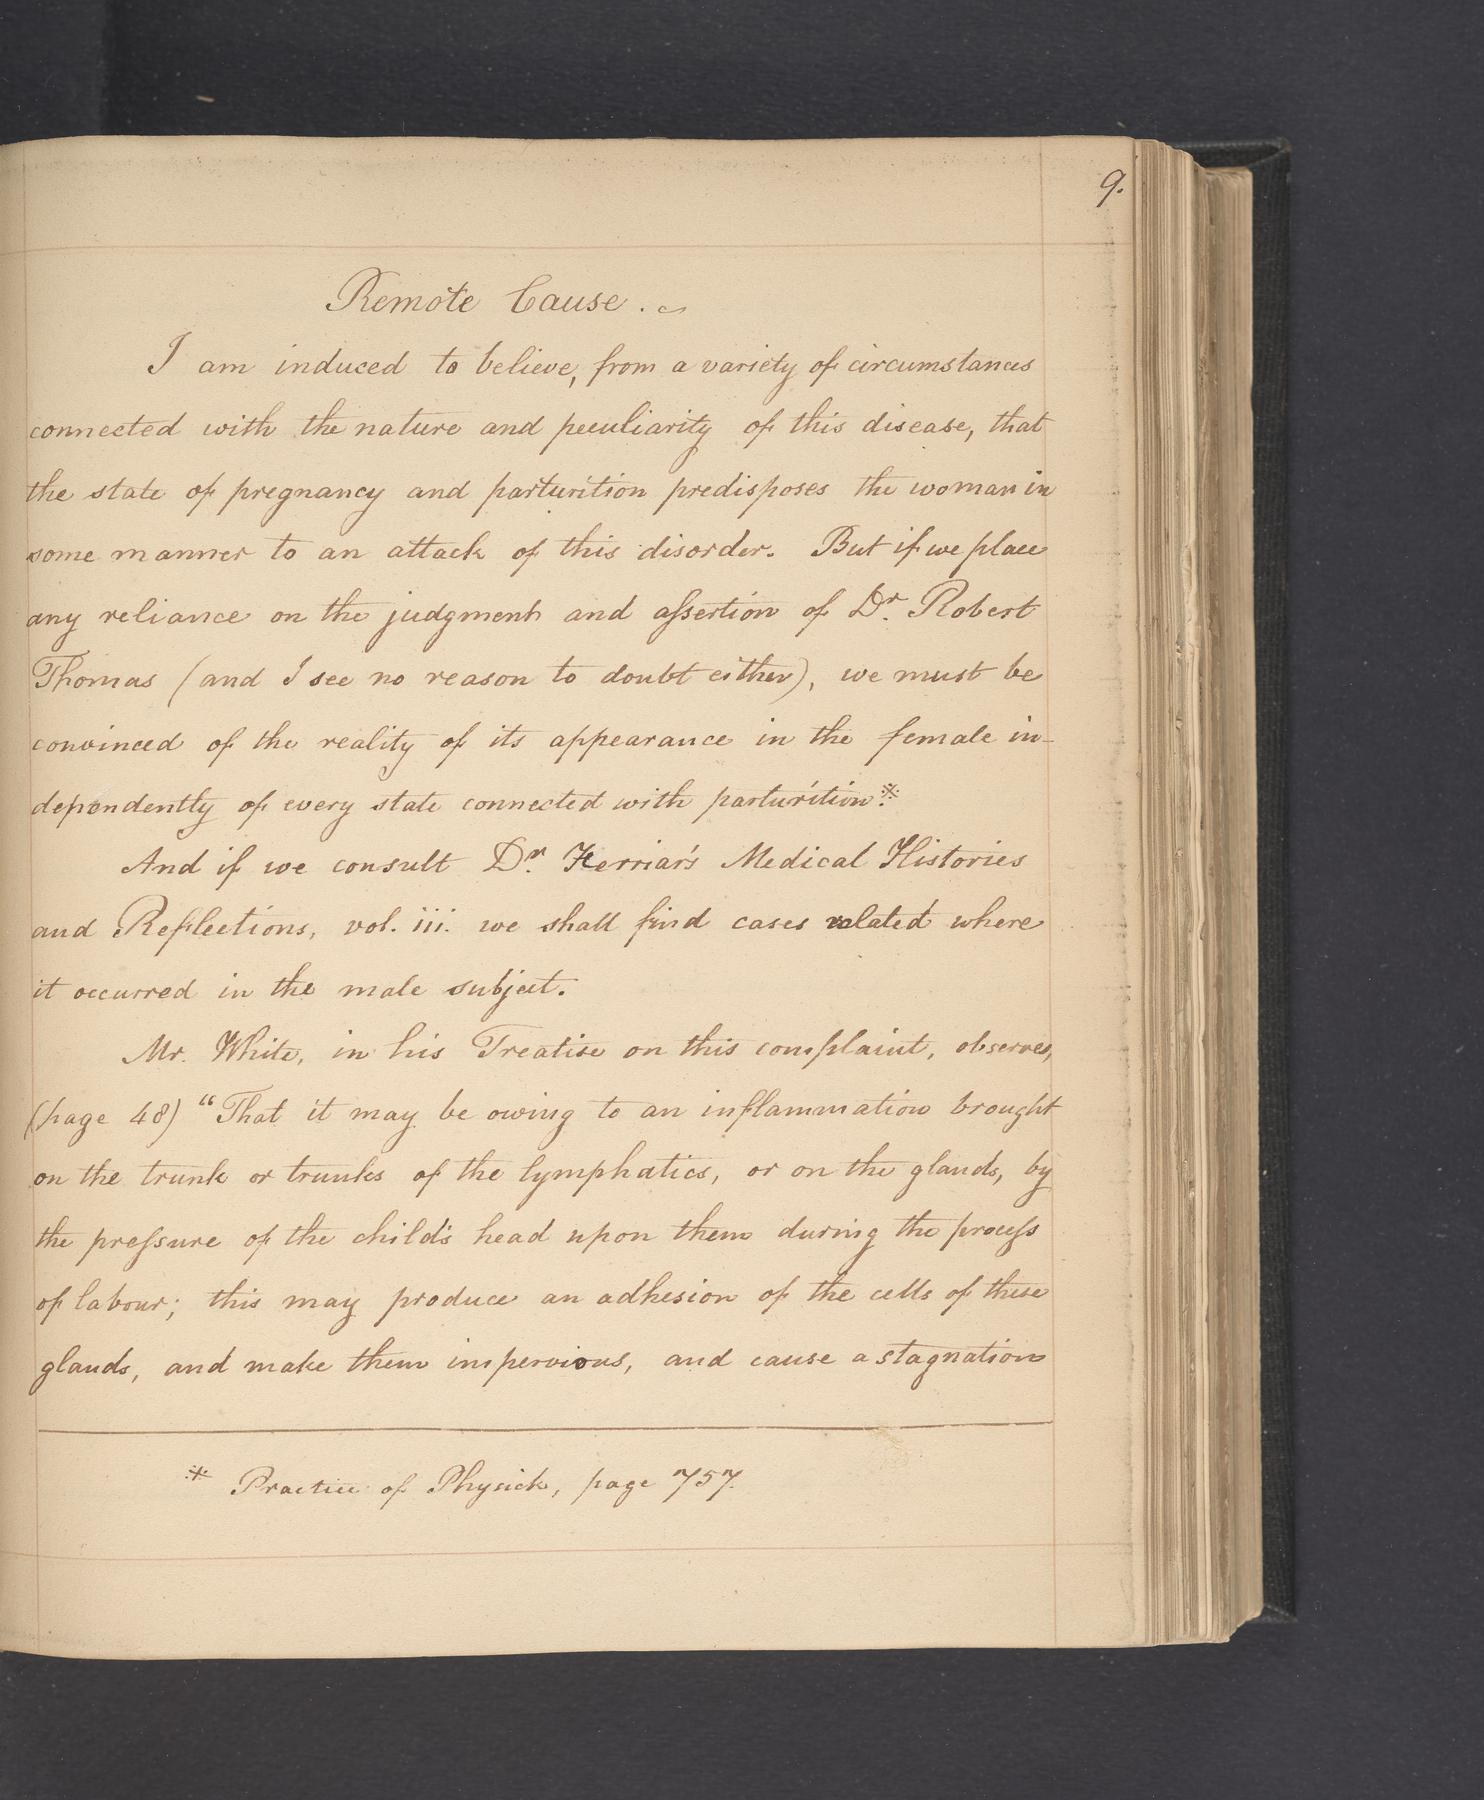 9.
Remote Cause.
I am induced to believe, from a variety of circumstances
connected with the nature and peculiarity of this disease, that
the state of pregnancy and parturition predisposes the woman in
some manner to an attack of this disorder. But if we place
any reliance on the judgment and assertion of Dr. Robert
Thomas (and I see no reason to doubt either), we must be
convinced of the reality of its appearance in the female in-
dependently of every state connected with parturition.*
And if we consult Dr. Ferriar's Medical Histories
and Reflections, vol. iii. we shall find cases related where
it occurred in the male subject.
Mr. White, in his Treatise on this complaint, observes,
(page 48) "That it may be owing to an inflammation brought
on the trunk or trunks of the lymphatics, or on the glands, by
the pressure of the child's head upon them during the process
of labour; this may produce an adhesion of the cells of these
glands, and make them impervious, and cause a stagnation
* Practice of Physick, page 757.